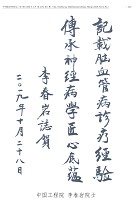 記載脑血管病診疗經驗
傳承神經病學匠心底蕴
李春岩誌賀
二〇一九年十月二十八日
中国工程院 李春岩院士